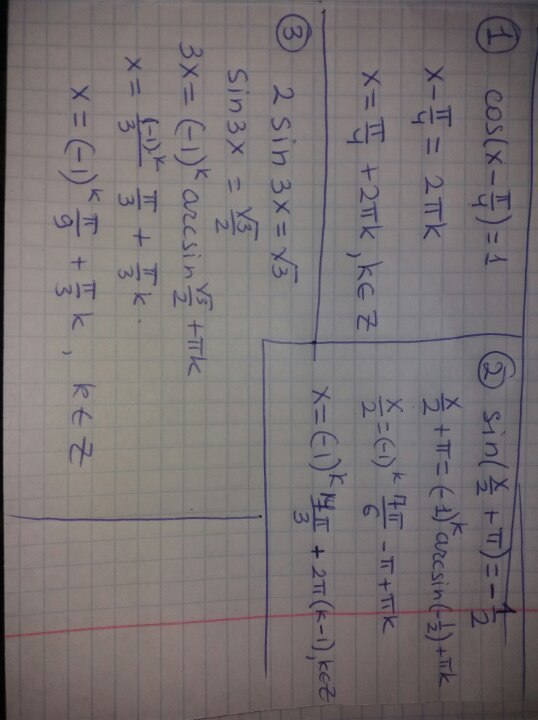 ① cos(x - π/4) = 1
x - π/4 = 2πk
x = π/4 + 2πk, k ∈ Z
② sin(x/2 + π) = - 1/2
x/2 + π = (-1)^k arcsin(-1/2) + πk
x/2 = (-1)^k 7π/6 - π + πk
x = (-1)^k π/3 + 2π(k-1), k ∈ Z
③ 2 sin 3x = √3
sin 3x = √3/2
3x = (-1)^k arcsin √3/2 + πk
x = (-1)^k/3 π/3 + π/3 k.
x = (-1)^k π/9 + π/3 k, k ∈ Z